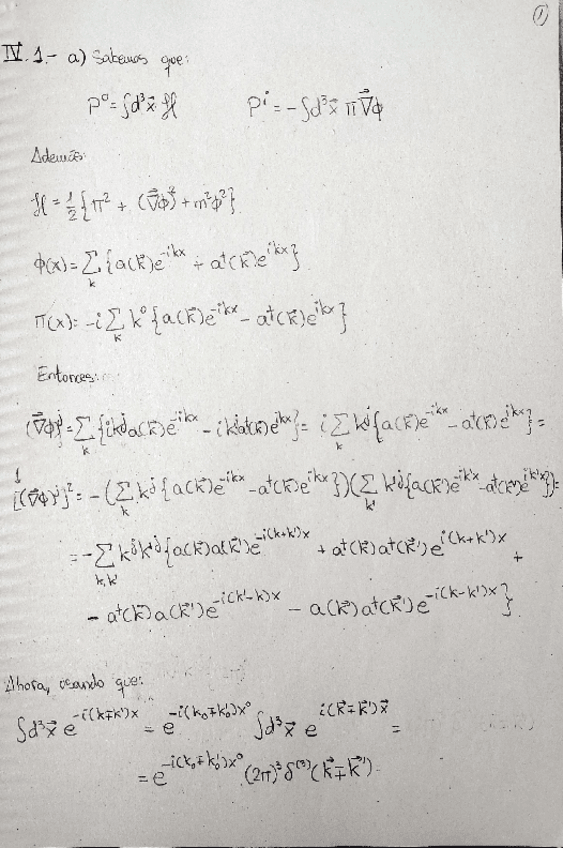 ①
IV. 1.- a) Sabemos que:
P⁰ = ∫d³x⃗ ℋ    Pⁱ = - ∫d³x⃗ π ∇⃗ϕ
Además:
ℋ = 1/2 {π² + (∇⃗ϕ)² + m²ϕ²}
ϕ(x) = Σ_k {a(k⃗)e^{-ikx} + a†(k⃗)e^{ikx}}
π(x) = -i Σ_k k⁰ {a(k⃗)e^{-ikx} - a†(k⃗)e^{ikx}}
Entonces:
(∇⃗ϕ)^j = Σ_k {ik^j a(k⃗)e^{-ikx} - ik^j a†(k⃗)e^{ikx}} = i Σ_k k^j {a(k⃗)e^{-ikx} - a†(k⃗)e^{ikx}} =
[(∇⃗ϕ)^j]² = -(Σ_k k^j {a(k⃗)e^{-ikx} - a†(k⃗)e^{ikx}})(Σ_k' k'^j {a(k⃗')e^{-ik'x} - a†(k⃗')e^{ik'x}}) =
= - Σ_{k,k'} k^j k'^j {a(k⃗)a(k⃗')e^{-i(k+k')x} + a†(k⃗)a†(k⃗')e^{i(k+k')x} +
- a†(k⃗)a(k⃗')e^{-i(k'-k)x} - a(k⃗)a†(k⃗')e^{-i(k-k')x}}
Ahora, usando que:
∫d³x⃗ e^{-i(k∓k')x} = e^{-i(k₀∓k₀')x⁰} ∫d³x⃗ e^{i(k⃗∓k⃗')x⃗} =
= e^{-i(k₀∓k₀')x⁰} (2π)³ δ^{(3)}(k⃗∓k⃗').